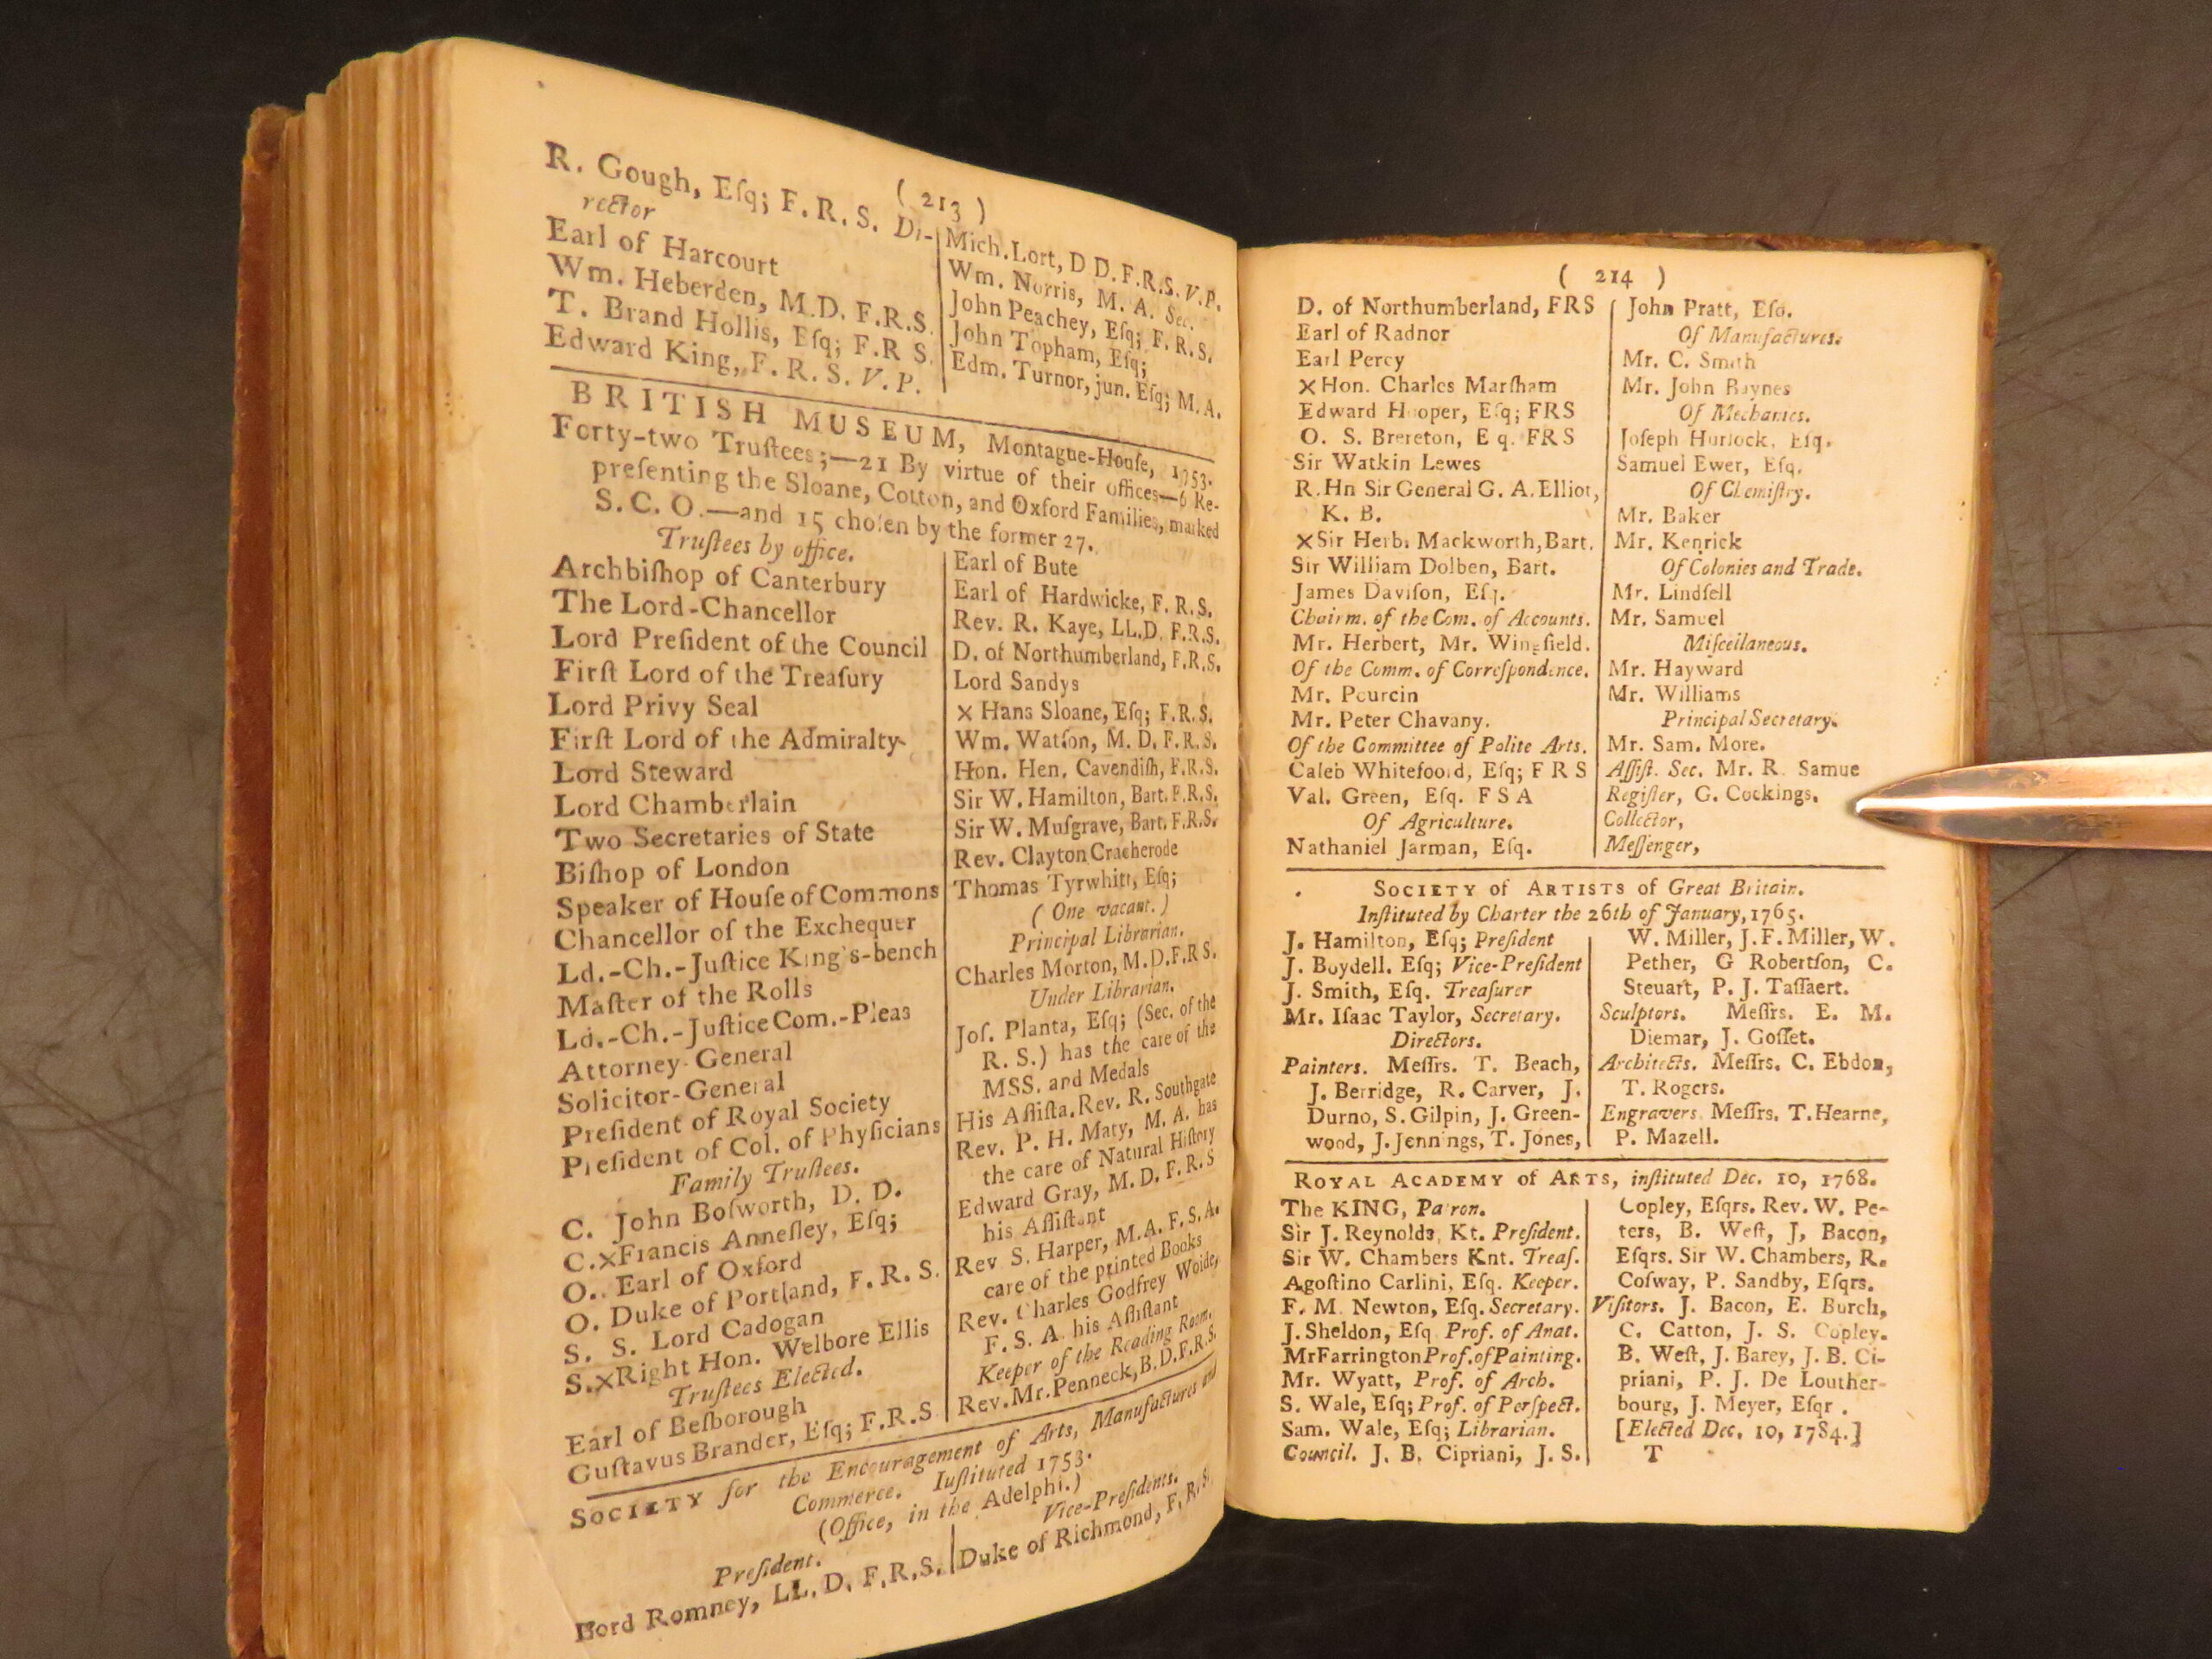 ( 213 )
R. Gough, Eſq; F. R. S. Di-
rector
Earl of Harcourt
Wm. Heberden, M.D. F.R.S.
T. Brand Hollis, Eſq; F.R S.
Edward King, F. R. S. V. P.
Mich. Lort, D D. F.R.S. V.P.
Wm. Norris, M. A. Sec.
John Peachey, Eſq; F. R. S.
John Topham, Eſq;
Edm. Turnor, jun. Eſq; M. A.
BRITISH MUSEUM, Montague-Houſe, 1753.
Forty-two Truſtees;—21 By virtue of their offices—6 Re-
preſenting the Sloane, Cotton, and Oxford Families, marked
S. C. O.—and 15 choſen by the former 27.
Truſtees by office.
Archbiſhop of Canterbury
The Lord-Chancellor
Lord Preſident of the Council
Firſt Lord of the Treaſury
Lord Privy Seal
Firſt Lord of the Admiralty
Lord Steward
Lord Chamberlain
Two Secretaries of State
Biſhop of London
Speaker of Houſe of Commons
Chancellor of the Exchequer
Ld.-Ch.-Juſtice King's-bench
Maſter of the Rolls
Ld.-Ch.-Juſtice Com.-Pleas
Attorney-General
Solicitor-General
Preſident of Royal Society
Preſident of Col. of Phyſicians
Family Truſtees.
C. John Boſworth, D. D.
C.×Francis Anneſley, Eſq;
O.. Earl of Oxford
O. Duke of Portland, F. R. S.
S. S. Lord Cadogan
S.×Right Hon. Welbore Ellis
Truſtees Elected.
Earl of Beſborough
Guſtavus Brander, Eſq; F.R.S
Earl of Bute
Earl of Hardwicke, F. R. S.
Rev. R. Kaye, LL.D. F.R.S.
D. of Northumberland, F.R.S.
Lord Sandys
× Hans Sloane, Eſq; F.R.S.
Wm. Watſon, M. D. F.R.S.
Hon. Hen. Cavendiſh, F.R.S.
Sir W. Hamilton, Bart. F.R.S.
Sir W. Muſgrave, Bart. F.R.S.
Rev. Clayton Cracherode
Thomas Tyrwhitt, Eſq;
( One vacant. )
Principal Librarian.
Charles Morton, M.D.F.R S.
Under Librarian.
Joſ. Planta, Eſq; (Sec. of the
R. S.) has the care of the
MSS. and Medals
His Aſſiſta. Rev. R. Southgate
Rev. P. H. Maty, M. A. has
the care of Natural Hiſtory
Edward Gray, M. D. F. R. S
his Aſſiſtant
Rev S. Harper, M.A. F. S. A.
care of the printed Books
Rev. Charles Godfrey Woide,
F. S. A. his Aſſiſtant
Keeper of the Reading Room.
Rev. Mr. Penneck, B.D.F.R.S.
SOCIETY for the Encouragement of Arts, Manufactures and
Commerce. Inſtituted 1753.
(Office, in the Adelphi.)
Preſident.
Lord Romney, LL. D. F.R.S.
Vice-Preſidents.
Duke of Richmond, F. R. S.
( 214 )
D. of Northumberland, FRS
Earl of Radnor
Earl Percy
×Hon. Charles Marſham
Edward Hooper, Eſq; FRS
O. S. Brereton, E q. FRS
Sir Watkin Lewes
R. Hn Sir General G. A. Elliot,
K. B.
×Sir Herb. Mackworth, Bart.
Sir William Dolben, Bart.
James Daviſon, Eſq.
Chairm. of the Com. of Accounts.
Mr. Herbert, Mr. Wingfield.
Of the Comm. of Correſpondence.
Mr. Pourcin
Mr. Peter Chavany.
Of the Committee of Polite Arts.
Caleb Whitefoord, Eſq; F R S
Val. Green, Eſq. F S A
Of Agriculture.
Nathaniel Jarman, Eſq.
John Pratt, Eſq.
Of Manufactures.
Mr. C. Smith
Mr. John Baynes
Of Mechanics.
Joſeph Hurlock, Eſq.
Samuel Ewer, Eſq.
Of Chemiſtry.
Mr. Baker
Mr. Kenrick
Of Colonies and Trade.
Mr. Lindſell
Mr. Samuel
Miſcellaneous.
Mr. Hayward
Mr. Williams
Principal Secretary.
Mr. Sam. More.
Aſſiſt. Sec. Mr. R. Samue
Regiſter, G. Cockings.
Collector,
Meſſenger,
SOCIETY of ARTISTS of Great Britain.
Inſtituted by Charter the 26th of January, 1765.
J. Hamilton, Eſq; Preſident
J. Boydell. Eſq; Vice-Preſident
J. Smith, Eſq. Treaſurer
Mr. Iſaac Taylor, Secretary.
Directors.
Painters. Meſſrs. T. Beach,
J. Berridge, R. Carver, J.
Durno, S. Gilpin, J. Green-
wood, J. Jennings, T. Jones,
W. Miller, J. F. Miller, W.
Pether, G Robertſon, C.
Steuart, P. J. Taſſaert.
Sculptors. Meſſrs. E. M.
Diemar, J. Goſſet.
Architects. Meſſrs. C. Ebdon,
T. Rogers.
Engravers. Meſſrs. T. Hearne,
P. Mazell.
ROYAL ACADEMY of ARTS, inſtituted Dec. 10, 1768.
The KING, Patron.
Sir J. Reynolds, Kt. Preſident.
Sir W. Chambers Knt. Treaſ.
Agoſtino Carlini, Eſq. Keeper.
F. M. Newton, Eſq. Secretary.
J. Sheldon, Eſq Prof. of Anat.
Mr Farrington Prof. of Painting.
Mr. Wyatt, Prof. of Arch.
S. Wale, Eſq; Prof. of Perſpect.
Sam. Wale, Eſq; Librarian.
Council. J. B. Cipriani, J. S.
Copley, Eſqrs. Rev. W. Pe-
ters, B. Weſt, J, Bacon,
Eſqrs. Sir W. Chambers, R.
Coſway, P. Sandby, Eſqrs.
Viſitors. J. Bacon, E. Burch,
C. Catton, J. S. Copley.
B. Weſt, J. Barey, J. B. Ci-
priani, P. J. De Louther-
bourg, J. Meyer, Eſqr .
[Elected Dec. 10, 1784.]
T